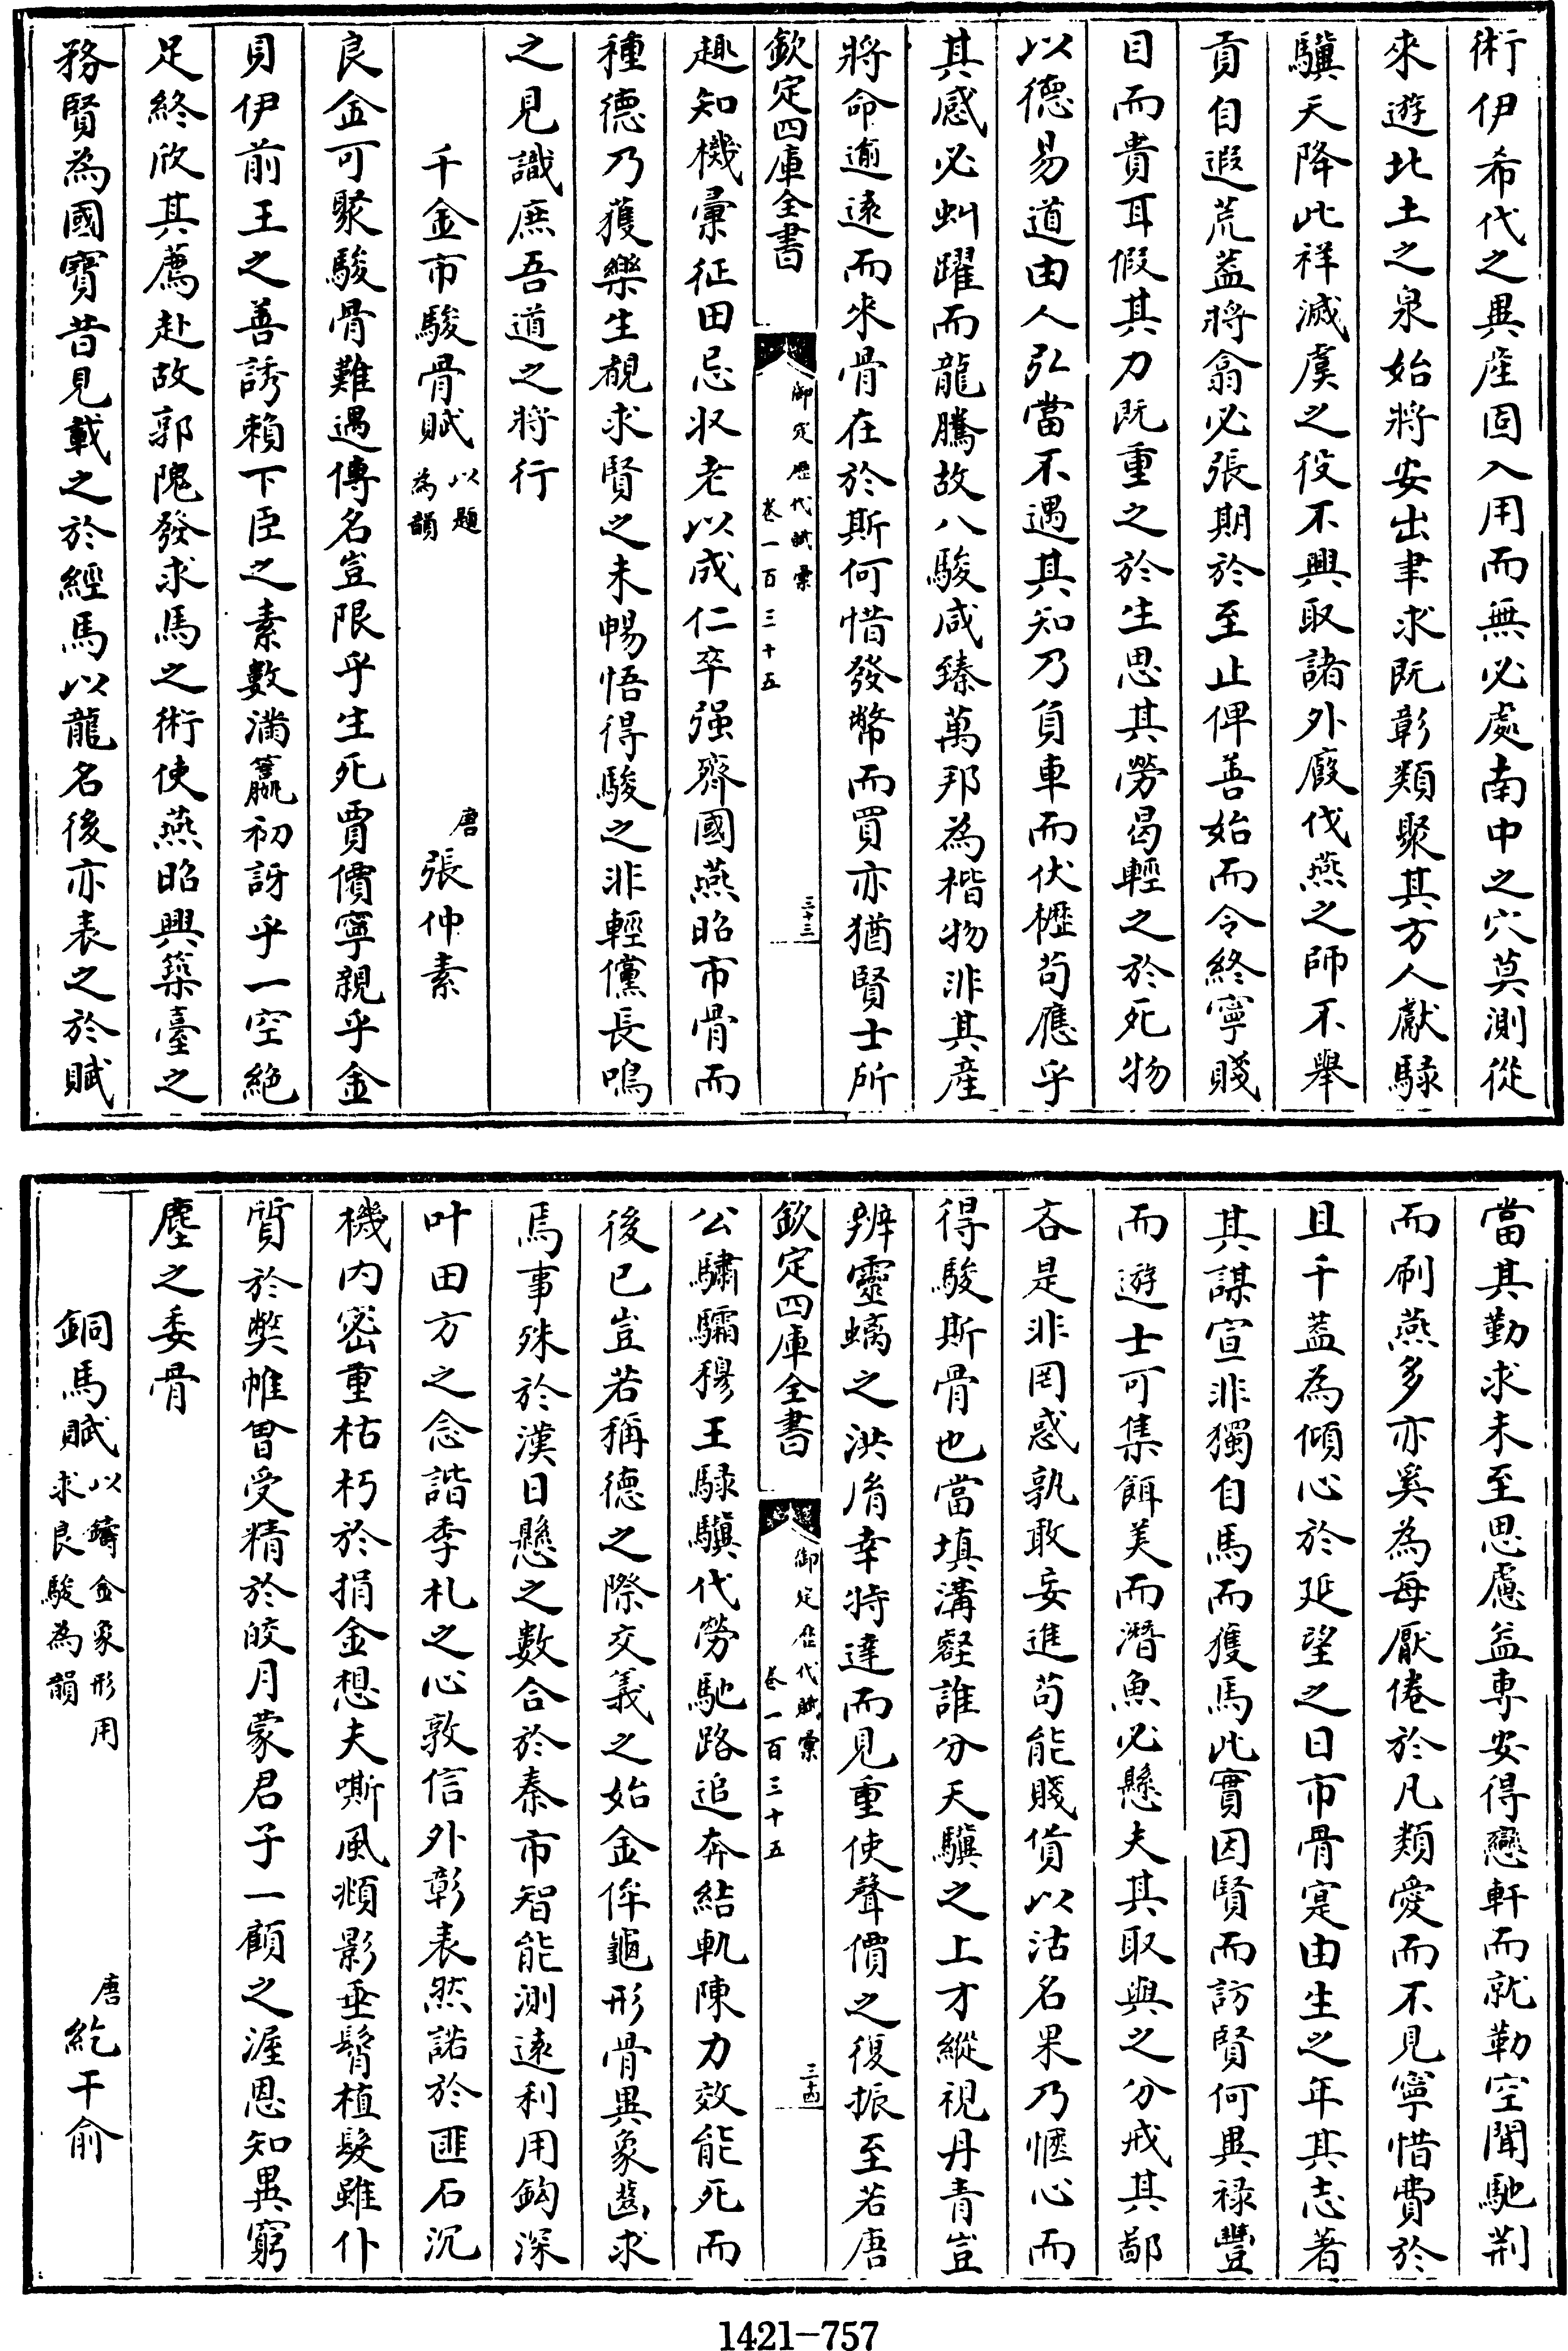 術伊希代之異産固入用而無必處南中之穴莫測從
來遊北土之泉始將安出聿求既彰類聚其方人獻騄
驥天降此祥滅虞之役不興取諸外廐伐燕之師不舉
貢自遐荒葢將翕必張期於至止俾善始而令終寧賤
目而貴耳假其力既重之於生思其勞曷輕之於死物
以德易道由人弘當不遇其知乃負車而伏櫪苟應乎
其感必虯躍而龍騰故八駿咸臻萬邦為楷物非其産
將命逾遠而來骨在於斯何惜發幣而買亦猶賢士所
欽定四庫全書
御定歷代賦彙
卷一百三十五
三十三
趣知機彙征田忌收老以成仁卒强齊國燕昭市骨而
種德乃獲樂生覩求賢之未暢悟得駿之非輕儻長鳴
之見識庶吾道之將行
千金市駿骨賦以題為韻 唐張仲素
良金可聚駿骨難遇傳名豈限乎生死賈價寧親乎金
貝伊前王之善誘賴下臣之素數滿籯初訝乎一空絶
足終欣其薦赴故郭隗發求馬之術使燕昭興築臺之
務賢為國寶昔見載之於經馬以龍名後亦表之於賦
當其勤求未至思慮益專安得戀軒而就勒空聞馳荆
而刷燕多亦奚為每厭倦於凡類愛而不見寧惜費於
且千葢為傾心於延望之日市骨寔由生之年其志著
其謀宣非獨自馬而獲馬此實因賢而訪賢何異祿豐
而遊士可集餌美而潛魚必懸夫其取與之分戒其鄙
吝是非罔惑孰敢妄進苟能賤貨以沽名果乃愜心而
得駿斯骨也當填溝壑誰分天驥之上才縱視丹青豈
辨靈螭之洪胤幸特達而見重使聲價之復振至若唐
欽定四庫全書
御定歷代賦彙
卷一百三十五
三十四
公驌驦穆王騄驥代勞馳路追奔結軌陳力效能死而
後已豈若稱德之際交義之始金侔龜形骨異象齒求
馬事殊於漢日懸之數合於秦市智能測遠利用鈎深
叶田方之念諧季札之心敦信外彰表然諾於匪石沉
機内密重枯朽於捐金想夫嘶風頫影垂鬐植髮雖仆
質於獘帷曾受精於皎月蒙君子一顧之渥恩知異窮
塵之委骨
銅馬賦以鑄金象形用求良駿為韻 唐紇干俞
1421-757